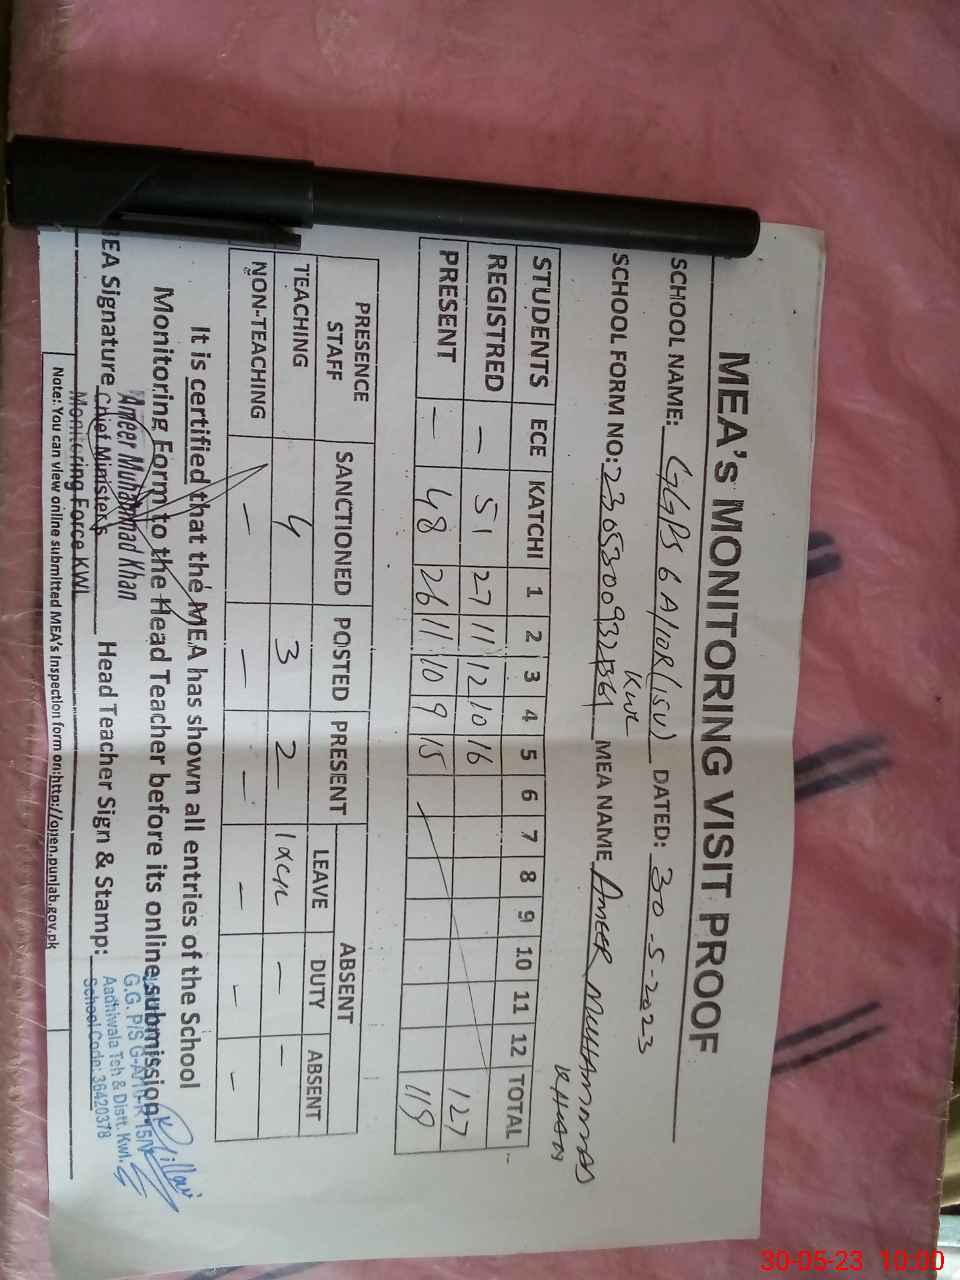 MEA's MONITORING VISIT PROOF
SCHOOL NAME: GGPS 6A/10R(15V) KWL DATED: 30-5-2023
SCHOOL FORM NO: MEA NAME AMEER MUHAMMAD KHAN
STUDENTS ECE KATCHI 1 2 3 4 5 6 7 8 9 10 11 12 TOTAL
REGISTRED — 51 27 11 12 10 16 127
PRESENT — 48 26 11 10 9 15 119
PRESENCE STAFF SANCTIONED POSTED PRESENT ABSENT
LEAVE DUTY ABSENT
TEACHING 4 3 2 — —
NON-TEACHING — — — — — —
It is certified that the MEA has shown all entries of the School
Monitoring Form to the Head Teacher before its online submission.
MEA Signature Head Teacher Sign & Stamp:
Ameer Muhammad Khan
Chief Minister's
Monitoring Force KWL
Aadhiwala Teh & Distt. Kwl.
School Code: 36420378
Note: You can view online submitted MEA's Inspection form on:http://open.punjab.gov.pk
30-05-23 10:00